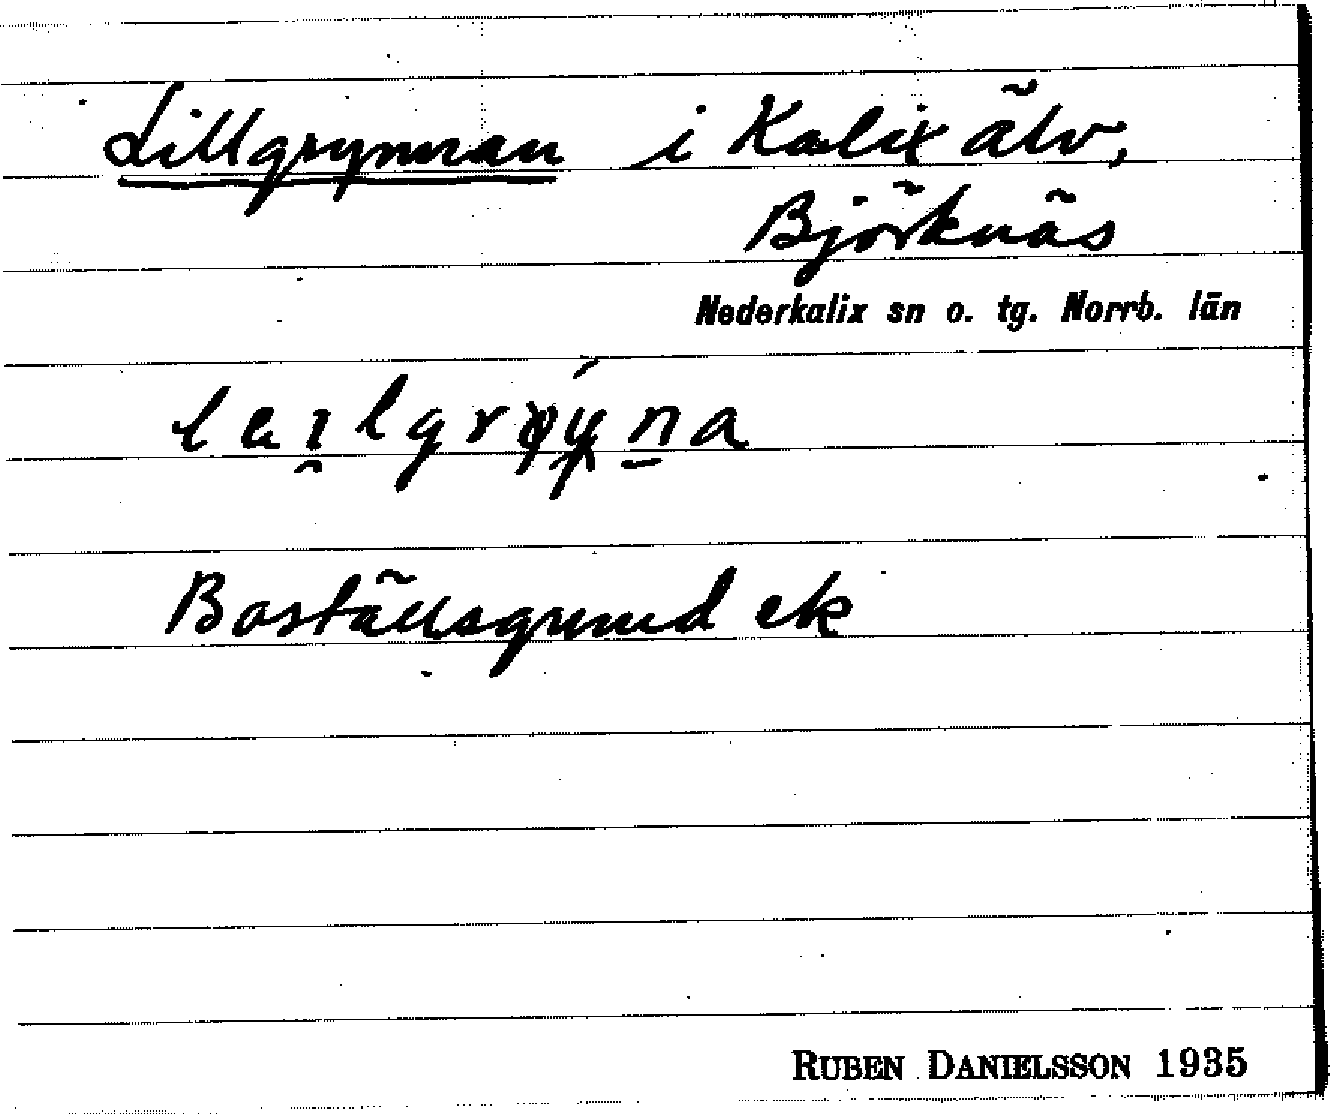 Lillgrynnan i Kalix älv,
Björknäs
Nederkalix sn o. tg. Norrb. län
Boställsgrund ek
RUBEN DANIELSSON 1935